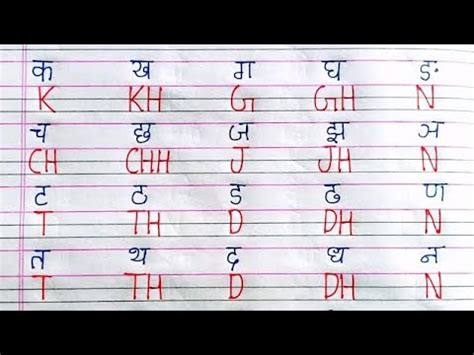 क ख ग घ ङ
K KH G GH N
च छ ज झ ञ
CH CHH J JH N
ट ठ ड ढ ण
T TH D DH N
त थ द ध न
T TH D DH N